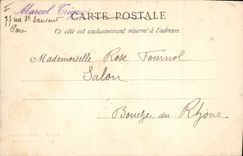 CARTE POSTALE
Marcel
77 rue St Sauveur
Paris
Ce côté est exclusivement réservé à l'adresse
Mademoiselle Rose Tournol
Salon
Bouches du Rhône